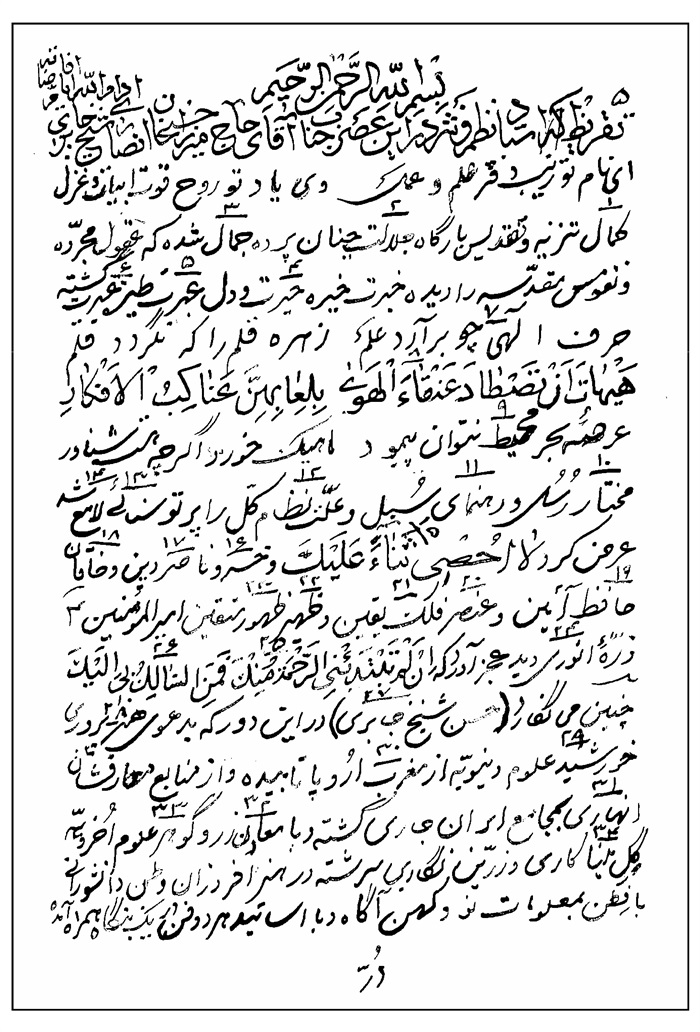 بِسْمِ اللّهِ الرَّحْمنِ الرَّحيمِ
ادام الله ایام افاضاته
تقریظ یکه استاد نظم و نثر در این عصر جناب آقای حاج میرزا حسنخان انصاری شیخ جابری
ای نام تو زیب دفتر علم و عمل وی یاد تو روح قوت ابیات و غزل
کمال تنزیه و تقدیس بارگاه جلالت چنان پرده جمال شده که عقول مجرّده
و نفوس مقدّسه را دیده خبرت خیره حیرت و دل عبرت طیره غیرت گشته
حرف الهی چو برآرد علم زهره قلم را که نگردد قلم
هَیْهاتَ اَنْ تَصْطادَ عَنْقاءَ الْهَوی بِلُعابِهِنَّ عَناکِبُ الْاَفْکارِ
عرصه بحر محیط نتوان پیمود ماهیک خورد اگرچه هست شناور
مختار رُسُل و رهنمای سُبُل و علّت نظام کل را پرتو سنائی لامع شد
عرض کرد لا اُحْصی ثَناءً عَلَیْکَ و خسرو ناصر دین و خاقان
حافظ آئین و عنصر فلک یقین و ظهیر ظهور متقین امیر المؤمنین
ذرّهٔ انوری دید عجز آورد که اِنْ لَمْ تَبْتَدِئْنِی الرَّحْمَةُ مِنْکَ فَمَنِ السّالِکُ بی اِلَیْکَ
چنین می نگارد (حسن شیخ جابری) در این دور که بدعوی هنر پروری
خورشید علوم دنیویه از مغرب اروپا تابیده و از منابع معارفشان
انهاری بمجامع ایران جاری گشته و با معادن زر و گوهر علوم اُخرویّه
گِل مینا کاری و زرّین نگاری سرشته در هنر افروزان وطن دانشورانی
با فِطَن بمعلومات نو و کهن آگاه و با اساتید هر دو فن در یک بزنگاه همراه آمده
دُرّ